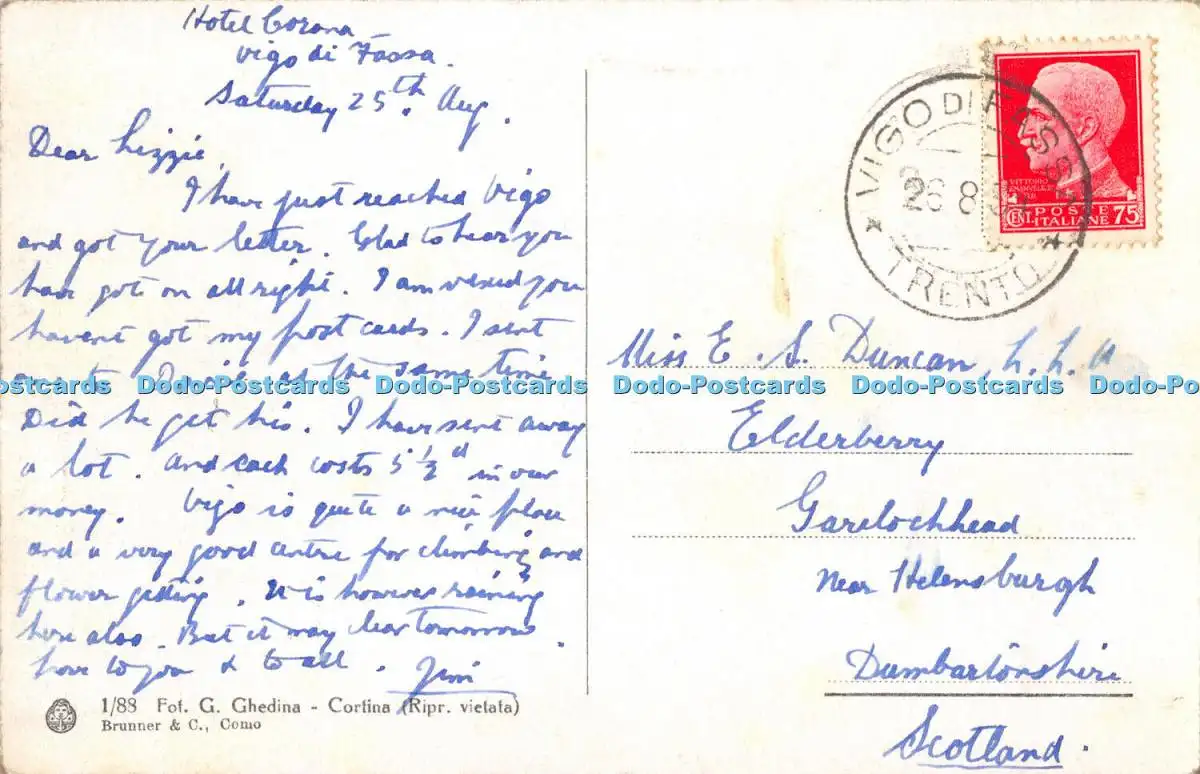 Hotel Corona
Vigo di Fassa.
Saturday 25th. Aug.
Dear Lizzie,
I have just reached Vigo
and got your letter. Glad to hear you
have got on all right. I am vexed you
havent got my post cards. I sent
at the same time
Did he get his. I have sent away
a lot. And each costs 5½d in our
money. Vigo is quite a nice place
and a very good centre for climbing and
flower getting. It is however raining
here also. But it may clear tomorrow.
love to you & to all. Jim
1/88 Fot. G. Ghedina - Cortina (Ripr. vietata)
Brunner & C., Como
VIGO DI FASSA
26 8
TRENTO
VITTORIO
EMANUELE
CENT. POSTE ITALIANE 75
Miss E. S. Duncan, L. L. A
Elderberry
Garelochhead
Near Helensburgh
Dumbartonshire
Scotland.
Postcards Dodo-Postcards Dodo-Postcards Dodo-Postcards Dodo-Postcards Dodo-Post